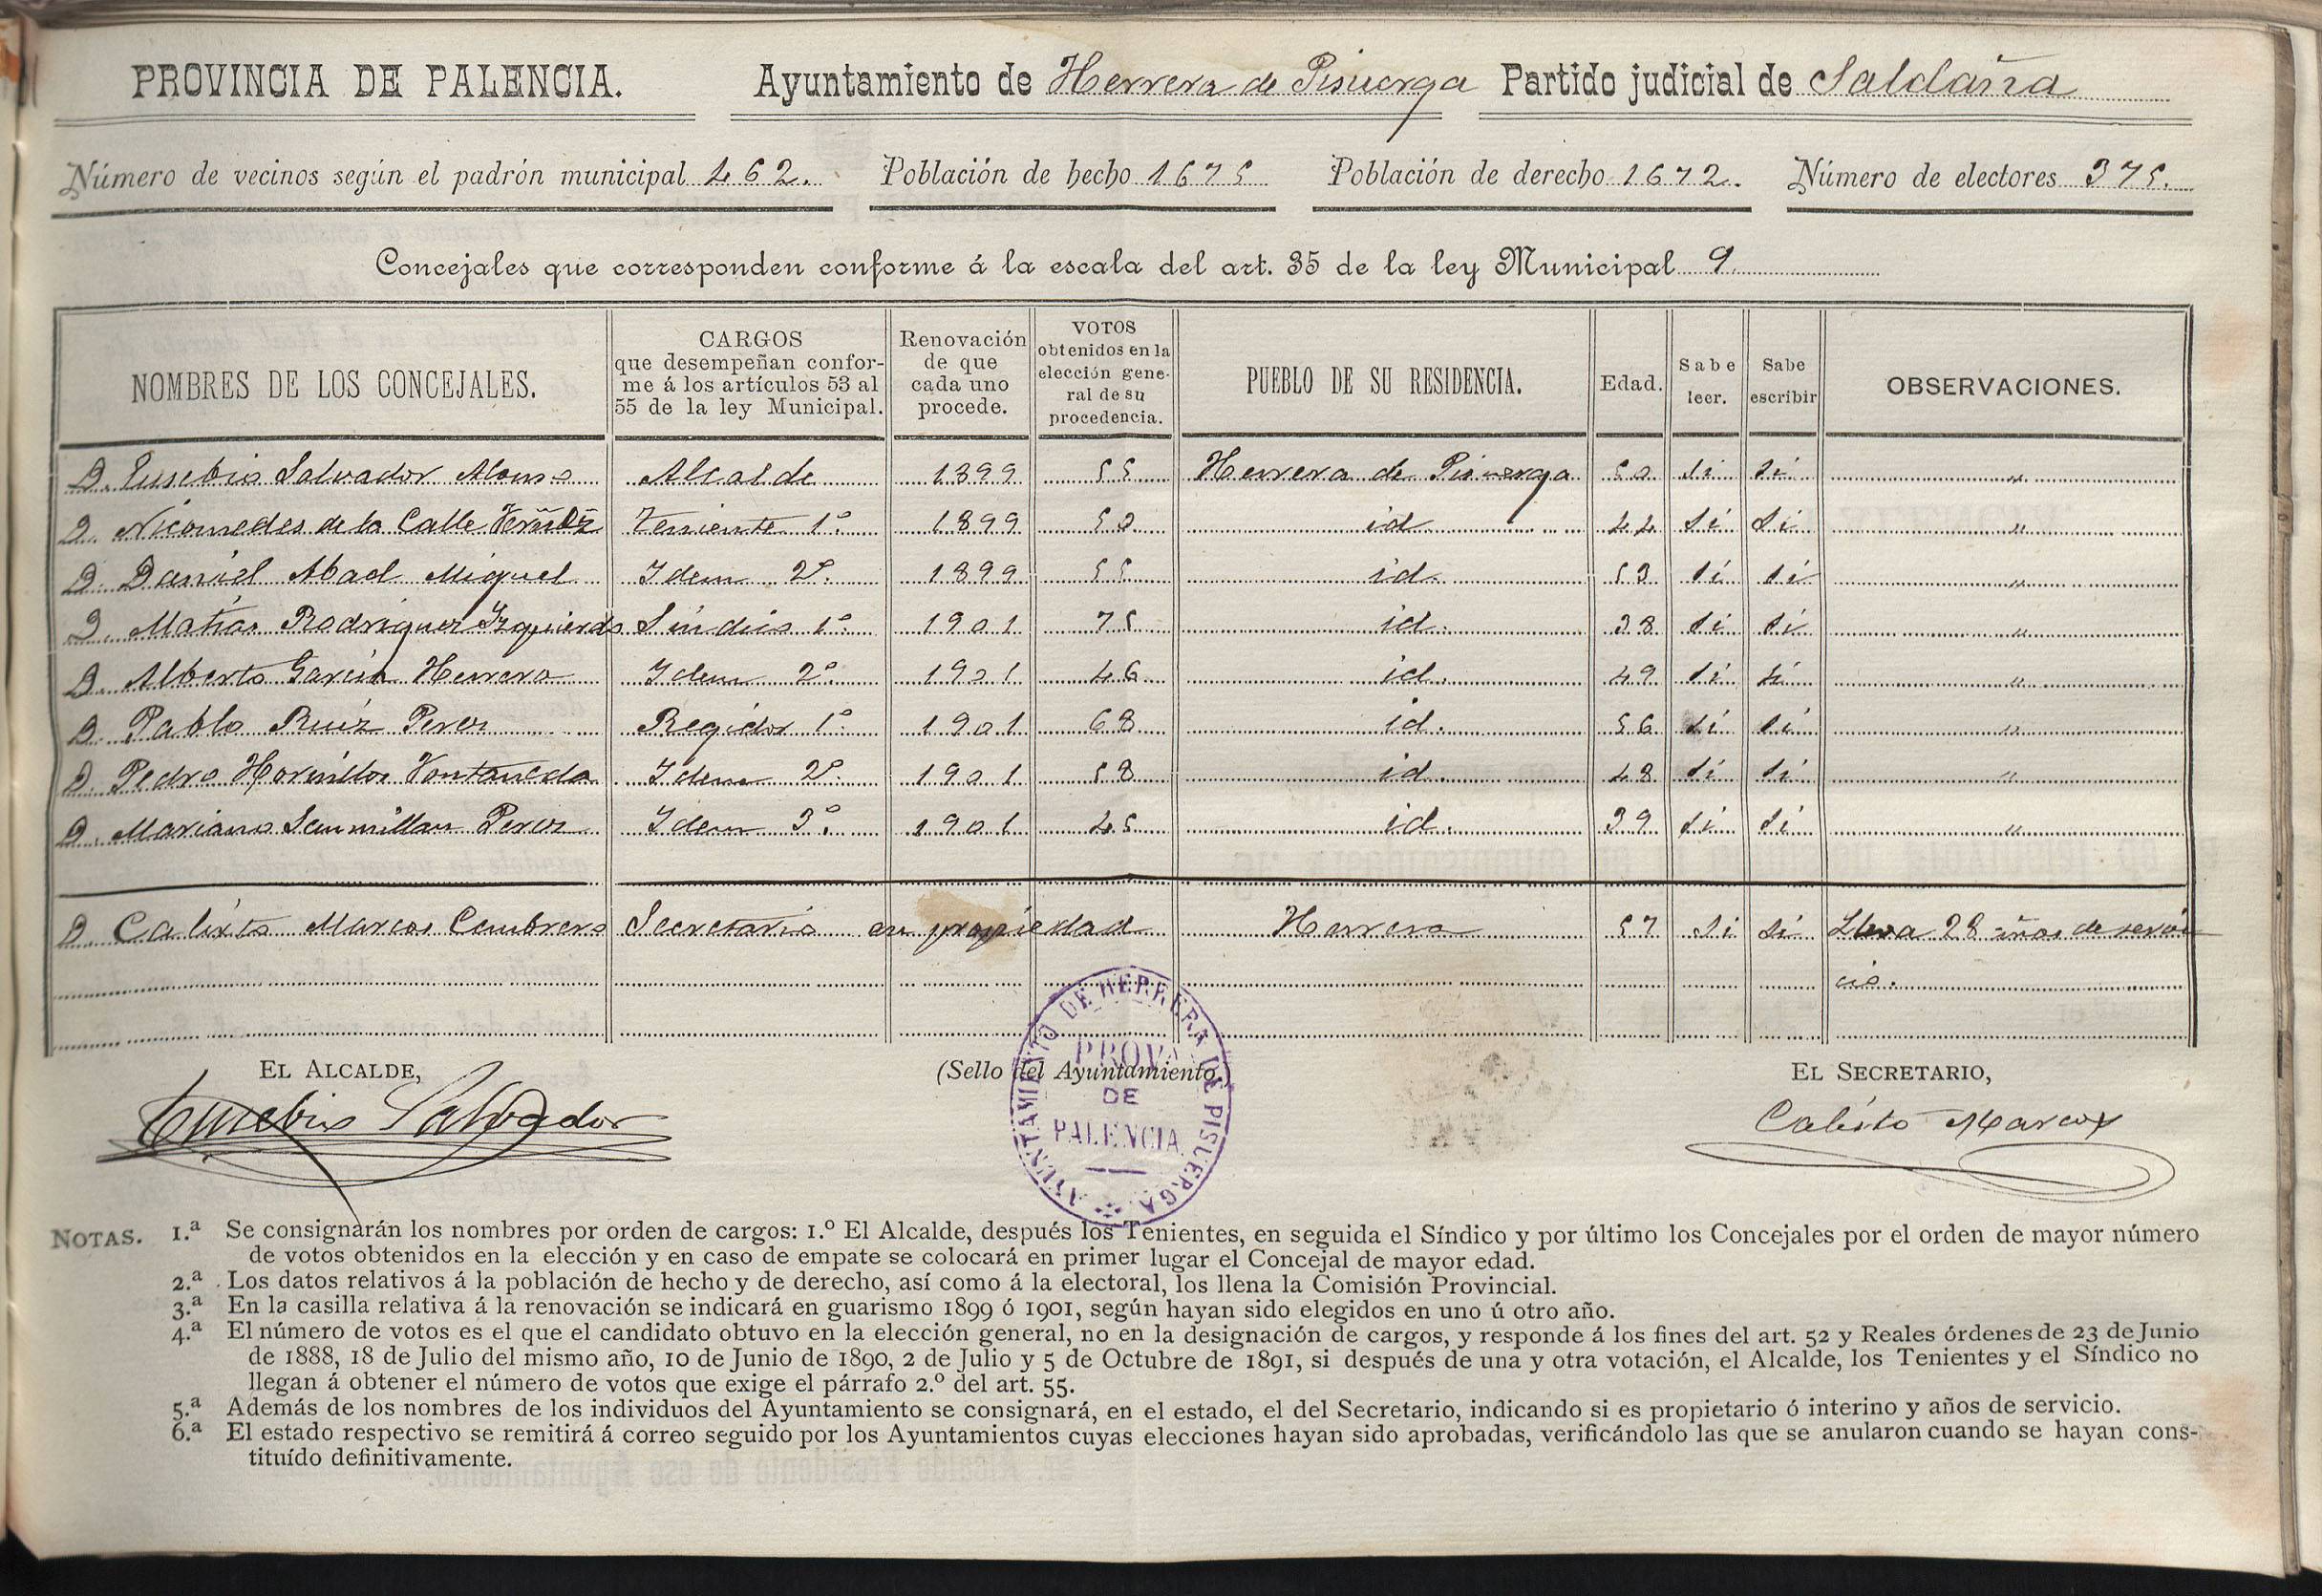 PROVINCIA DE PALENCIA. Ayuntamiento de Herrera de Pisuerga Partido judicial de Saldaña
Número de vecinos según el padrón municipal 462. Población de hecho 1675 Población de derecho 1672. Número de electores 375.
Concejales que corresponden conforme á la escala del art. 35 de la ley Municipal 9
NOMBRES DE LOS CONCEJALES.
CARGOS
que desempeñan confor-
me á los artículos 53 al
55 de la ley Municipal.
Renovación
de que
cada uno
procede.
VOTOS
obtenidos en la
elección gene-
ral de su
procedencia.
PUEBLO DE SU RESIDENCIA.
Edad.
Sabe
leer.
Sabe
escribir
OBSERVACIONES.
D. Eusebio Salvador Alonso Alcalde 1899 55 Herrera de Pisuerga 50 si si "
D. Nicomedes de la Calle Teniente 1º 1899 50 id 44 si si "
D. Daniel Abad Miguel Idem 2º. 1899 55 id. 53 si si "
D. Matias Rodriguez Izquierdo Síndico 1º. 1901 75 id. 38 si si "
D. Alberto García Herrero Idem 2º. 1901 46 id. 49 si si "
D. Pablo Ruiz Perez Regidor 1º. 1901 68 id. 56 si si "
D. Pedro Hornillos Fontaneda Idem 2º. 1901 58 id. 48 si si "
D. Mariano Sanmillan Perez Idem 3º. 1901 45 id. 39 si si "
D. Calixto Marcos Cembrero Secretario en propiedad Herrera 57 si si Lleva 28 años de servi
cio.
EL ALCALDE, (Sello del Ayuntamiento) EL SECRETARIO,
Eusebio Salvador
Calixto Marcos
AYUNTAMIENTO DE HERRERA DE PISUERGA
PROVA
DE
PALENCIA
NOTAS. 1.ª Se consignarán los nombres por orden de cargos: 1.º El Alcalde, después los Tenientes, en seguida el Síndico y por último los Concejales por el orden de mayor número
de votos obtenidos en la elección y en caso de empate se colocará en primer lugar el Concejal de mayor edad.
2.ª Los datos relativos á la población de hecho y de derecho, así como á la electoral, los llena la Comisión Provincial.
3.ª En la casilla relativa á la renovación se indicará en guarismo 1899 ó 1901, según hayan sido elegidos en uno ú otro año.
4.ª El número de votos es el que el candidato obtuvo en la elección general, no en la designación de cargos, y responde á los fines del art. 52 y Reales órdenes de 23 de Junio
de 1888, 18 de Julio del mismo año, 10 de Junio de 1890, 2 de Julio y 5 de Octubre de 1891, si después de una y otra votación, el Alcalde, los Tenientes y el Síndico no
llegan á obtener el número de votos que exige el párrafo 2.º del art. 55.
5.ª Además de los nombres de los individuos del Ayuntamiento se consignará, en el estado, el del Secretario, indicando si es propietario ó interino y años de servicio.
6.ª El estado respectivo se remitirá á correo seguido por los Ayuntamientos cuyas elecciones hayan sido aprobadas, verificándolo las que se anularon cuando se hayan cons-
tituído definitivamente.